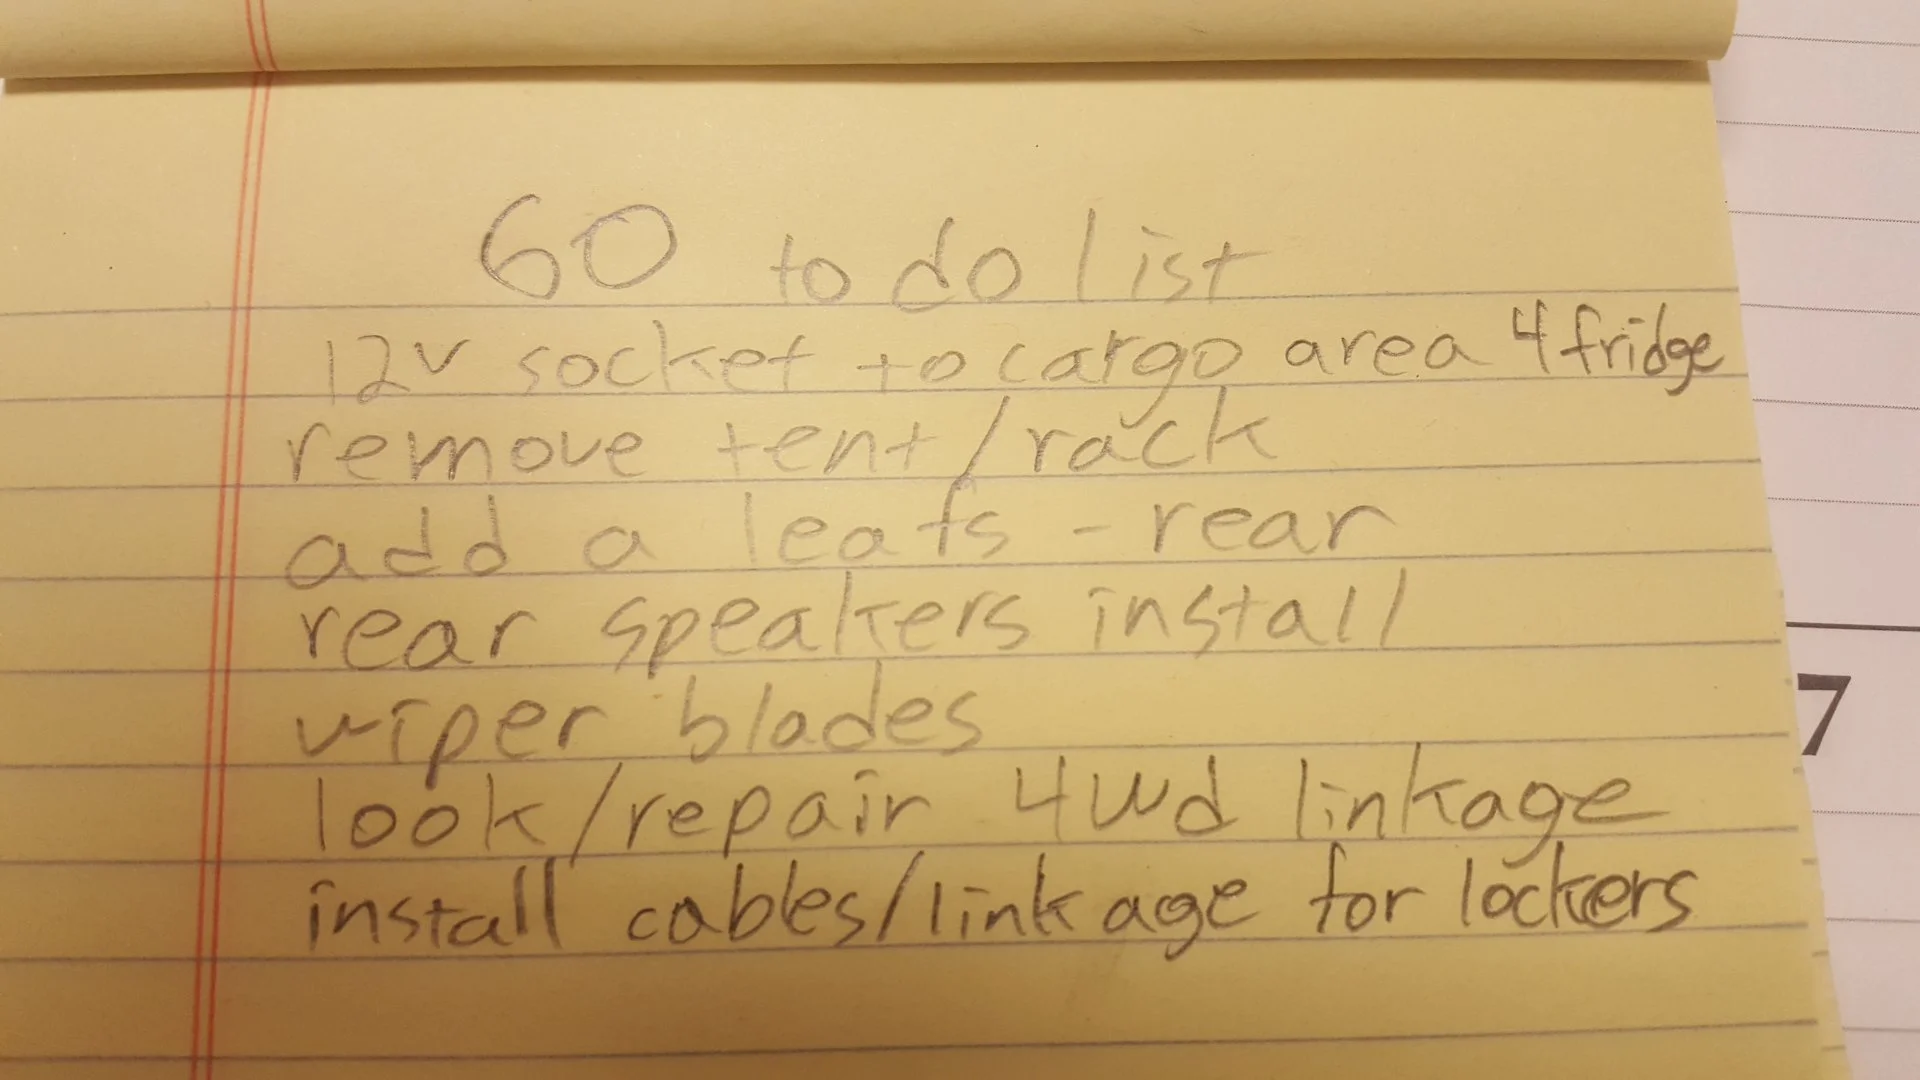 60 to do list
12v socket to cargo area 4 fridge
remove tent/rack
add a leafs - rear
rear speakers install
wiper blades
look/repair 4wd linkage
install cables/linkage for lockers
7